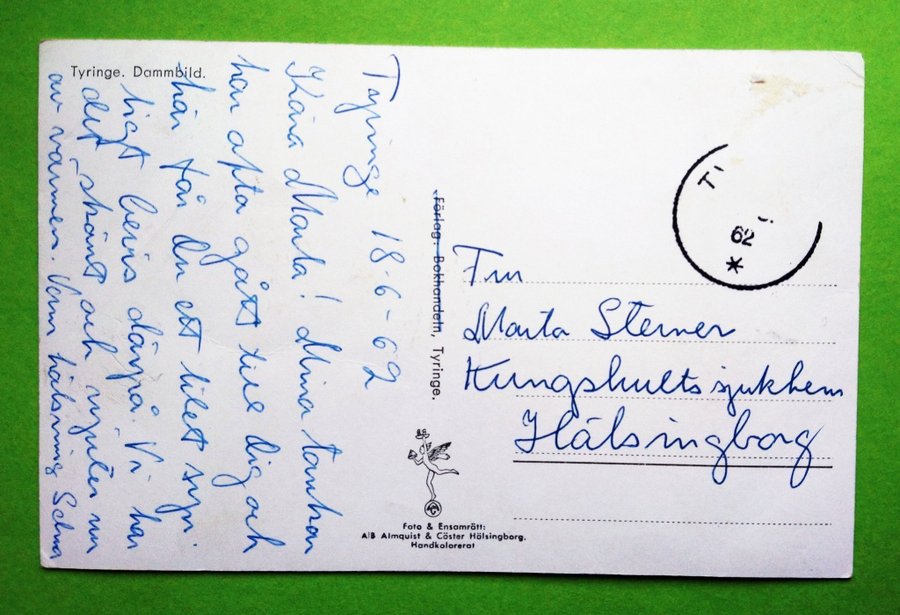 Tyringe. Dammbild.
Tyringe 18-6-62
Kära Marta! Mina tankar
har ofta gått till dig och
här får du ett litet syn-
ligt bevis därpå. Vi har
det skönt och njuter nu
av värmen. Varm hälsning
Förlag: Bokhandeln, Tyringe.
62
Fru
Marta Sterner
Kungshults sjukhem
Hälsingborg
Foto & Ensamrätt:
A/B Almquist & Cöster Hälsingborg.
Handkolorerat